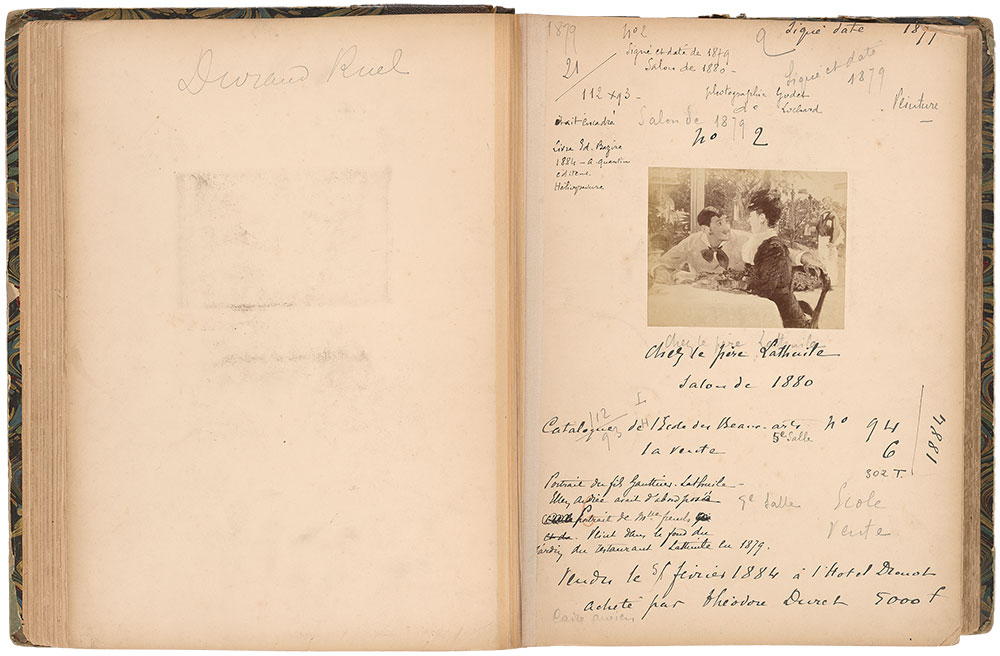 Durand Ruel
1879 no 2 9 Signé date 1877
21 Signé et date de 1879
Salon de 1880 -
Signé et daté
1879
112 x 93 - photographie Godet
do Lochard
Peinture
était encadré Salon de 1879
no 2
Livre Ed. Bazire
1884 - A quantin
éditeur
Héliogravure
Chez le père Lathuile
Chez le père Lathuile
Salon de 1880
112
93
Catalogue de l'Ecole des Beaux-arts No 94
5e Salle
la vente 6
1884
302 T.
Portrait du fils Gauthier-Lathuile -
Ellen Andrée avait d'abord posée
9e Salle
Ecole
Vente
portrait de Mlle french
Peint dans le fond du
jardin du restaurant Lathuile en 1879.
Vendu le 5 février 1884 à l'Hotel Drouot
acheté par théodore Duret 5000 f
Cadre ancien